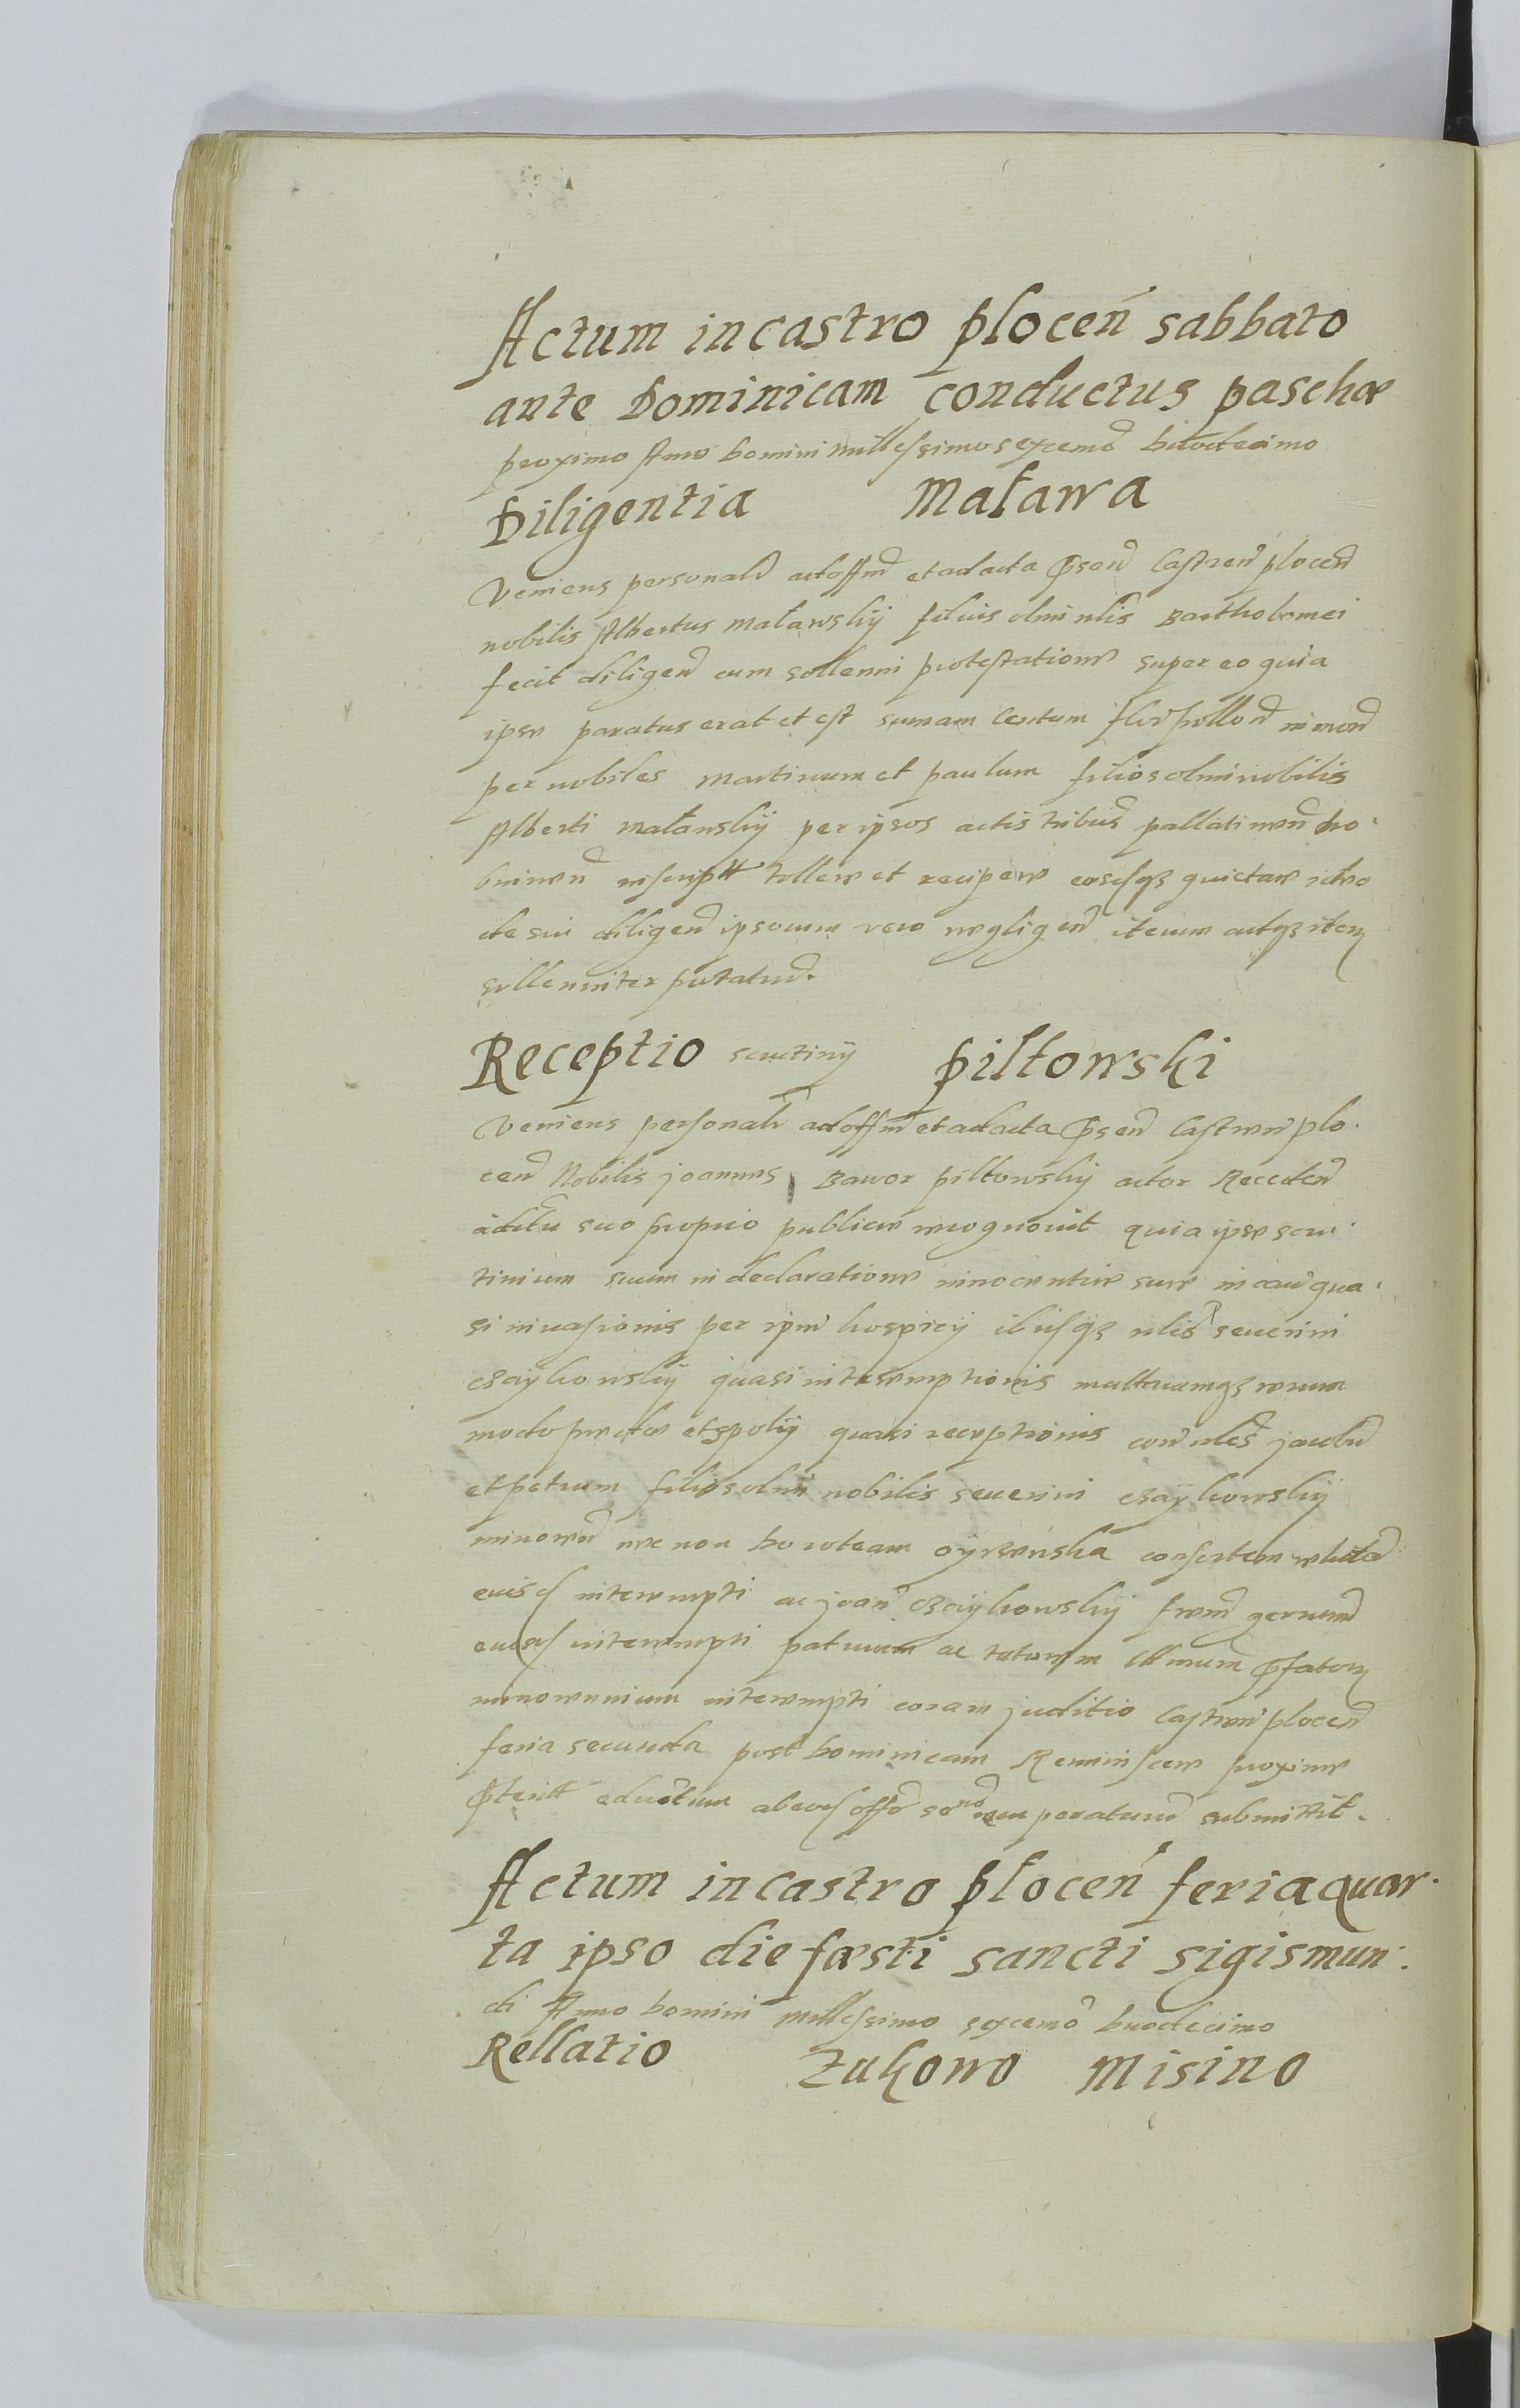 Actum in castro plocen̄ sabbato
ante Dominicam conductus paschæ
proximo Anno domini millessimo sexcen̄o duodecimo
Diligentia Maława
Veniens personalr̄ ad offm̄ et ad acta p̄sen̄ Castren̄ plocen̄
nobilis Albertus Maławskij filius olim nlis Bartholomei
fecit diligen̄ cum sollenni protestatione super eo quia
ipse paratus erat et est sumam Centum pollon̄ in mon̄
per nobiles Martinum et paulum filios olim nobilis
Alberti Maławskij per ipsos actis pallatinen̄ do·
brinen̄ inscriptt tollere et recipere eosdqȝ quictare ideo
de sui diligen̄ ipsorum vero negligen̄ iterum
sollenniter
Receptio scrutinij piłtowski
Veniens personalr̄ ad offm̄ et ad acta p̄sen̄ Castren̄ plo·
cen̄ Nobilis joannes Bawor piłtowskij actor Receden̄
suo proprio publice recognovit quia ipse scru·
tinium suum in declaratione innocentiæ suæ in cau̅ qua·
si invasionis per ipm̄ hospicij ibidqȝ nlis severini
czaijkowskij quasi interemptionis multarumqȝ rerum
modo prædæ et spolij quasi receptionis con̄ nles jacobu̅
et petrum filios olim nobilis severini czaijkowskij
minoren̄ nec non doroteam consortem relicta̅
euisd interempti ac joan̄ czaijkowskij frem̄ german̄
euisd interempti patruum ac tutorem
minorennium interempti coram juditio Castren̄ plocen̄
feria secunda post dominicam Reminiscere proxime
p̄teritt eductum ab eod offo submittit.
Actum in castro plocen̄ feria quar·
ta ipso die fæsti sancti sigismun·
di Anno domini millessimo sexcen̄o duodecimo
Rellatio Zukowo Misino